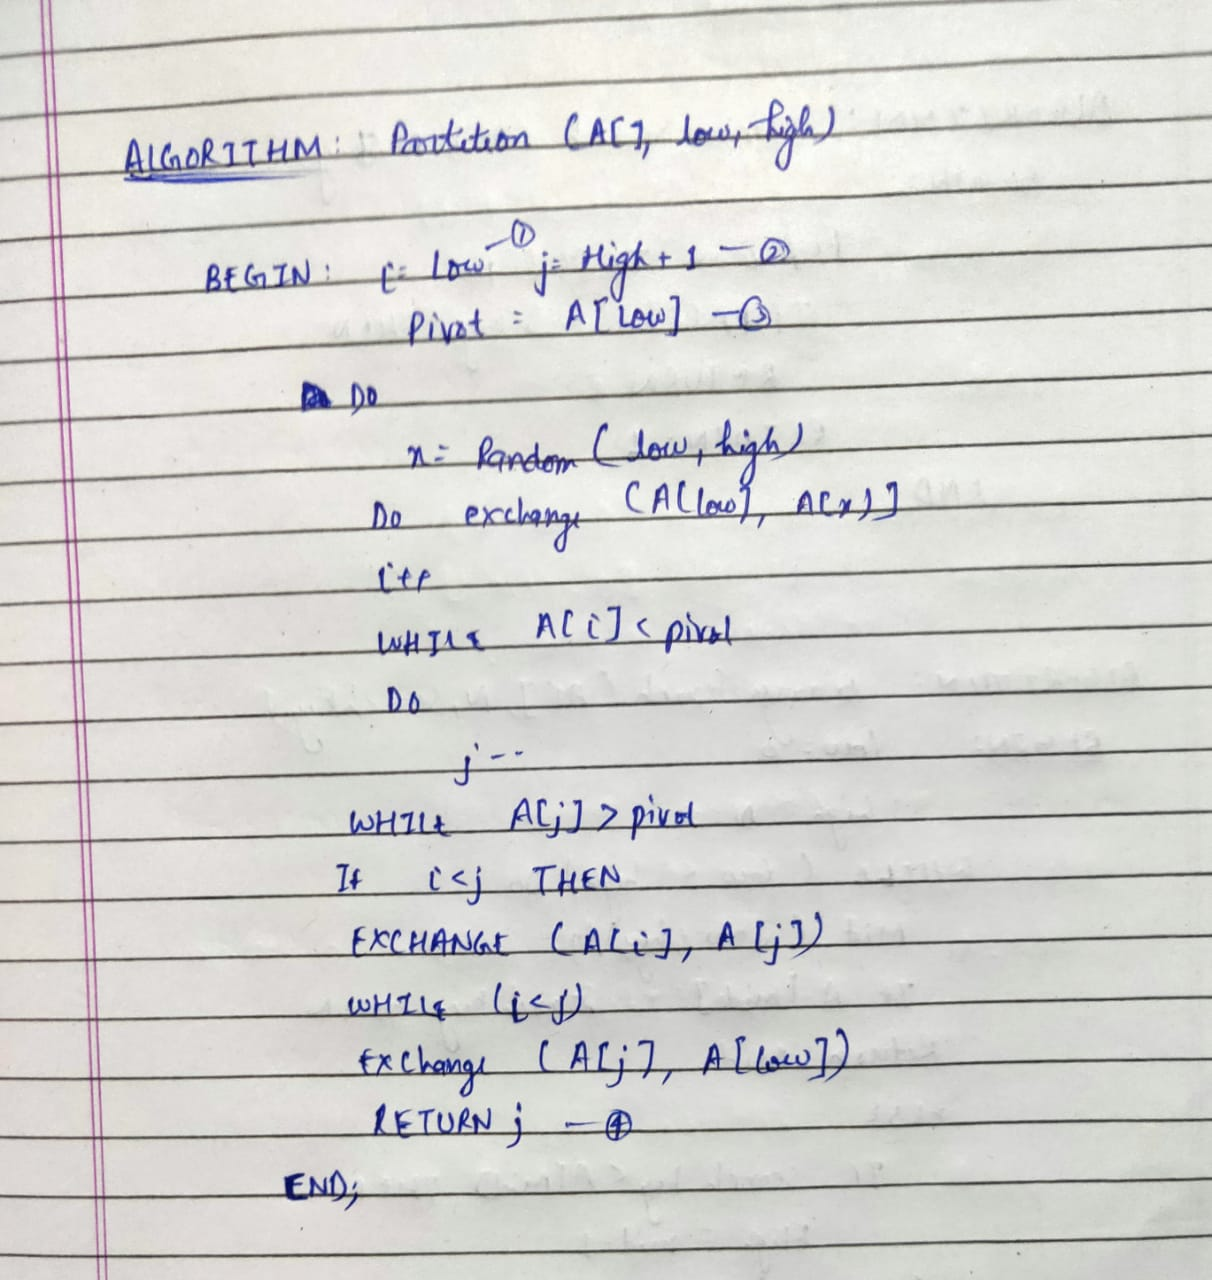 ALGORITHM: Partition (A[], low, high)
BEGIN: i= Low —① j= High + 1 — ②
Pivot = A[Low] —③
DO
x= Random (low, high)
Do exchange (A[low], A[x)]
i++
WHILE A[i] < pivot
DO
j--
WHILE A[j] > pivot
If i<j THEN
EXCHANGE (A[i], A[j])
WHILE (i<j)
Exchange (A[j], A[low])
RETURN j — ④
END;